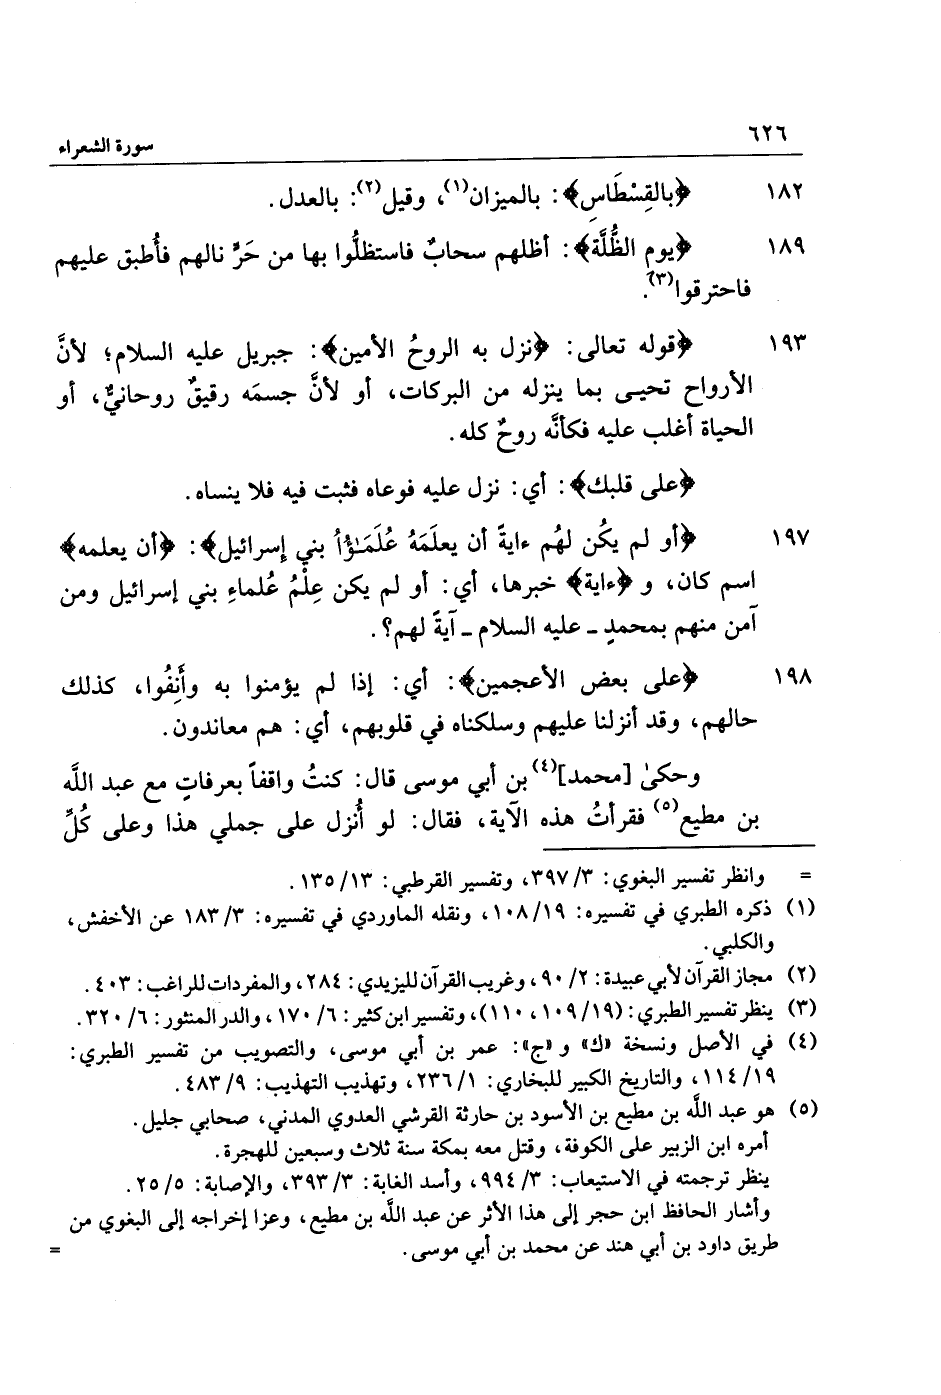 ٦٢٦
سورة الشعراء
١٨٢ ﴿بالقِسْطَاسِ﴾: بالميزان(١)، وقيل(٢): بالعدل.
١٨٩ ﴿يوم الظُّلَّة﴾: أظلهم سحابٌ فاستظلُّوا بها من حَرٍّ نالهم فأُطبق عليهم
فاحترقوا(٣).
١٩٣ ﴿قوله تعالى: ﴿نزل به الروحُ الأمين﴾: جبريل عليه السلام؛ لأنَّ
الأرواح تحيـى بما ينزله من البركات، أو لأنَّ جسمَه رقيقٌ روحانيٌّ، أو
الحياة أغلب عليه فكأنَّه روحٌ كله.
﴿على قلبك﴾: أي: نزل عليه فوعاه فثبت فيه فلا ينساه.
١٩٧ ﴿أو لم يكُن لهُم ءايةً أن يعلَمَهُ عُلَمَـٰؤُاْ بني إِسرائيل﴾: ﴿أن يعلمه﴾
اسم كان، و ﴿ءاية﴾ خبرها، أي: أو لم يكن عِلْمُ عُلماءِ بني إسرائيل ومن
آمن منهم بمحمدٍ ـ عليه السلام ـ آيةً لهم؟.
١٩٨ ﴿على بعض الأعجمين﴾: أي: إذا لم يؤمنوا به وأَنِفُوا، كذلك
حالهم، وقد أنزلنا عليهم وسلكناه في قلوبهم، أي: هم معاندون.
وحكىٰ [محمد](٤) بن أبي موسى قال: كنتُ واقفاً بعرفاتٍ مع عبد اللَّه
بن مطيع(٥) فقرأتُ هذه الآية، فقال: لو أُنزل على جملي هذا وعلى كُلِّ
= وانظر تفسير البغوي: ٣/ ٣٩٧، وتفسير القرطبي: ١٣/ ١٣٥.
(١) ذكره الطبري في تفسيره: ١٩/ ١٠٨، ونقله الماوردي في تفسيره: ٣/ ١٨٣ عن الأخفش،
والكلبي.
(٢) مجاز القرآن لأبي عبيدة: ٢/ ٩٠، وغريب القرآن لليزيدي: ٢٨٤، والمفردات للراغب: ٤٠٣.
(٣) ينظر تفسير الطبري: (١٩/ ١٠٩، ١١٠)، وتفسير ابن كثير: ٦/ ١٧٠، والدر المنثور: ٦/ ٣٢٠.
(٤) في الأصل ونسخة «ك» و «ج»: عمر بن أبي موسى، والتصويب من تفسير الطبري:
١٩/ ١١٤، والتاريخ الكبير للبخاري: ١/ ٢٣٦، وتهذيب التهذيب: ٩/ ٤٨٣.
(٥) هو عبد اللَّه بن مطيع بن الأسود بن حارثة القرشي العدوي المدني، صحابي جليل.
أمره ابن الزبير على الكوفة، وقتل معه بمكة سنة ثلاث وسبعين للهجرة.
ينظر ترجمته في الاستيعاب: ٣/ ٩٩٤، وأسد الغابة: ٣/ ٣٩٣، والإصابة: ٥/ ٢٥.
وأشار الحافظ ابن حجر إلى هذا الأثر عن عبد اللَّه بن مطيع، وعزا إخراجه إلى البغوي من
طريق داود بن أبي هند عن محمد بن أبي موسى. =